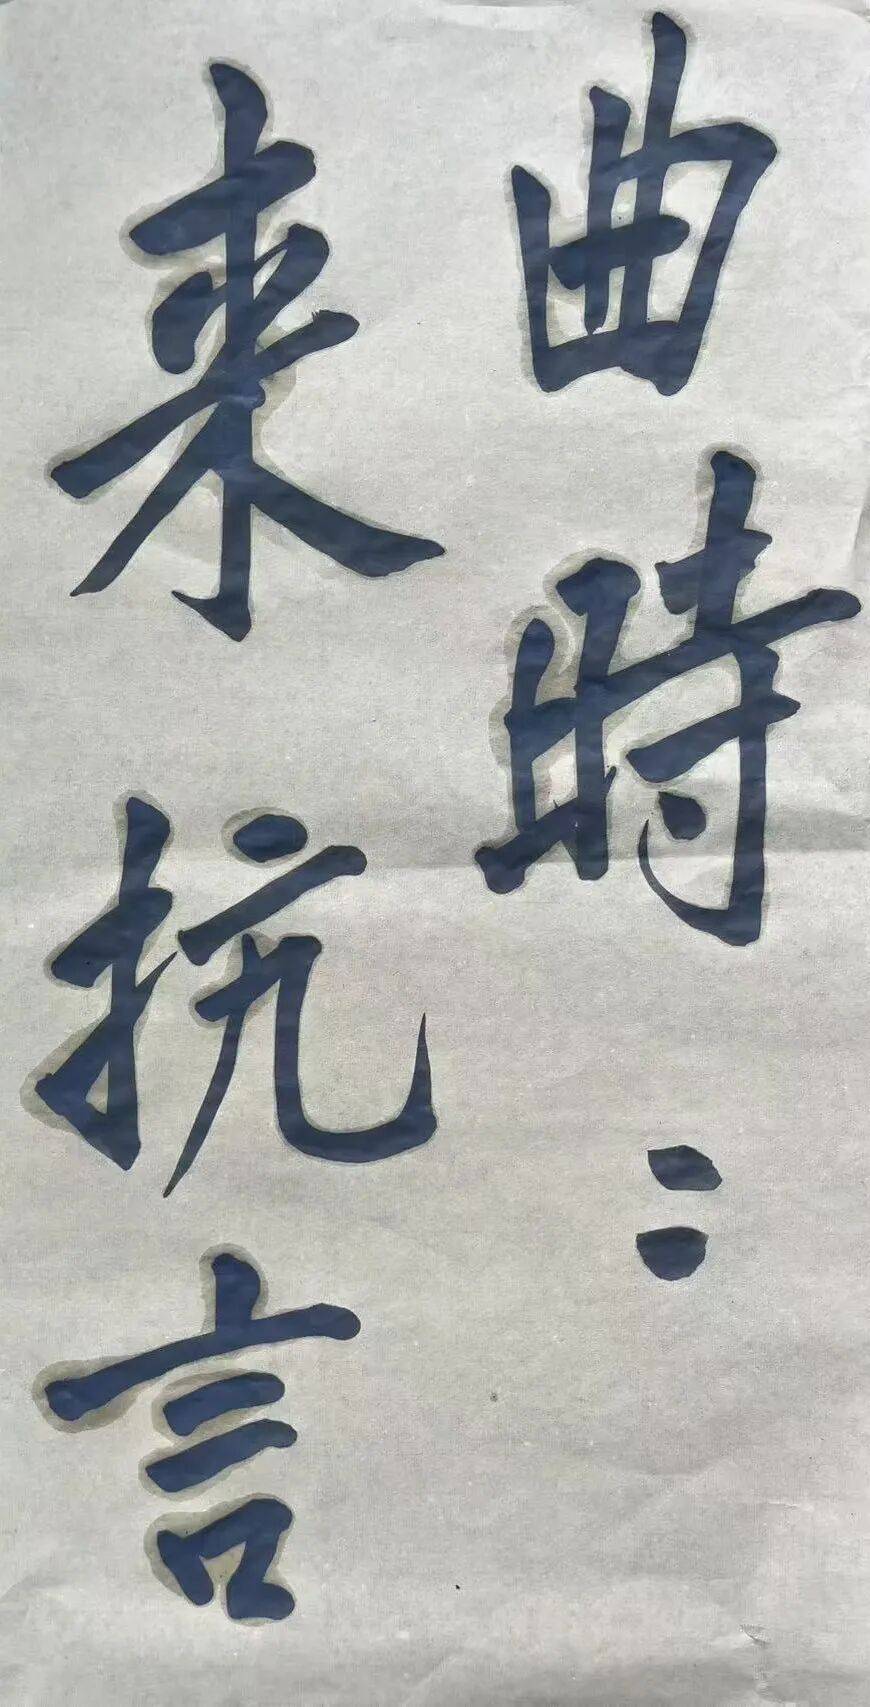 曲時〻
来抗言